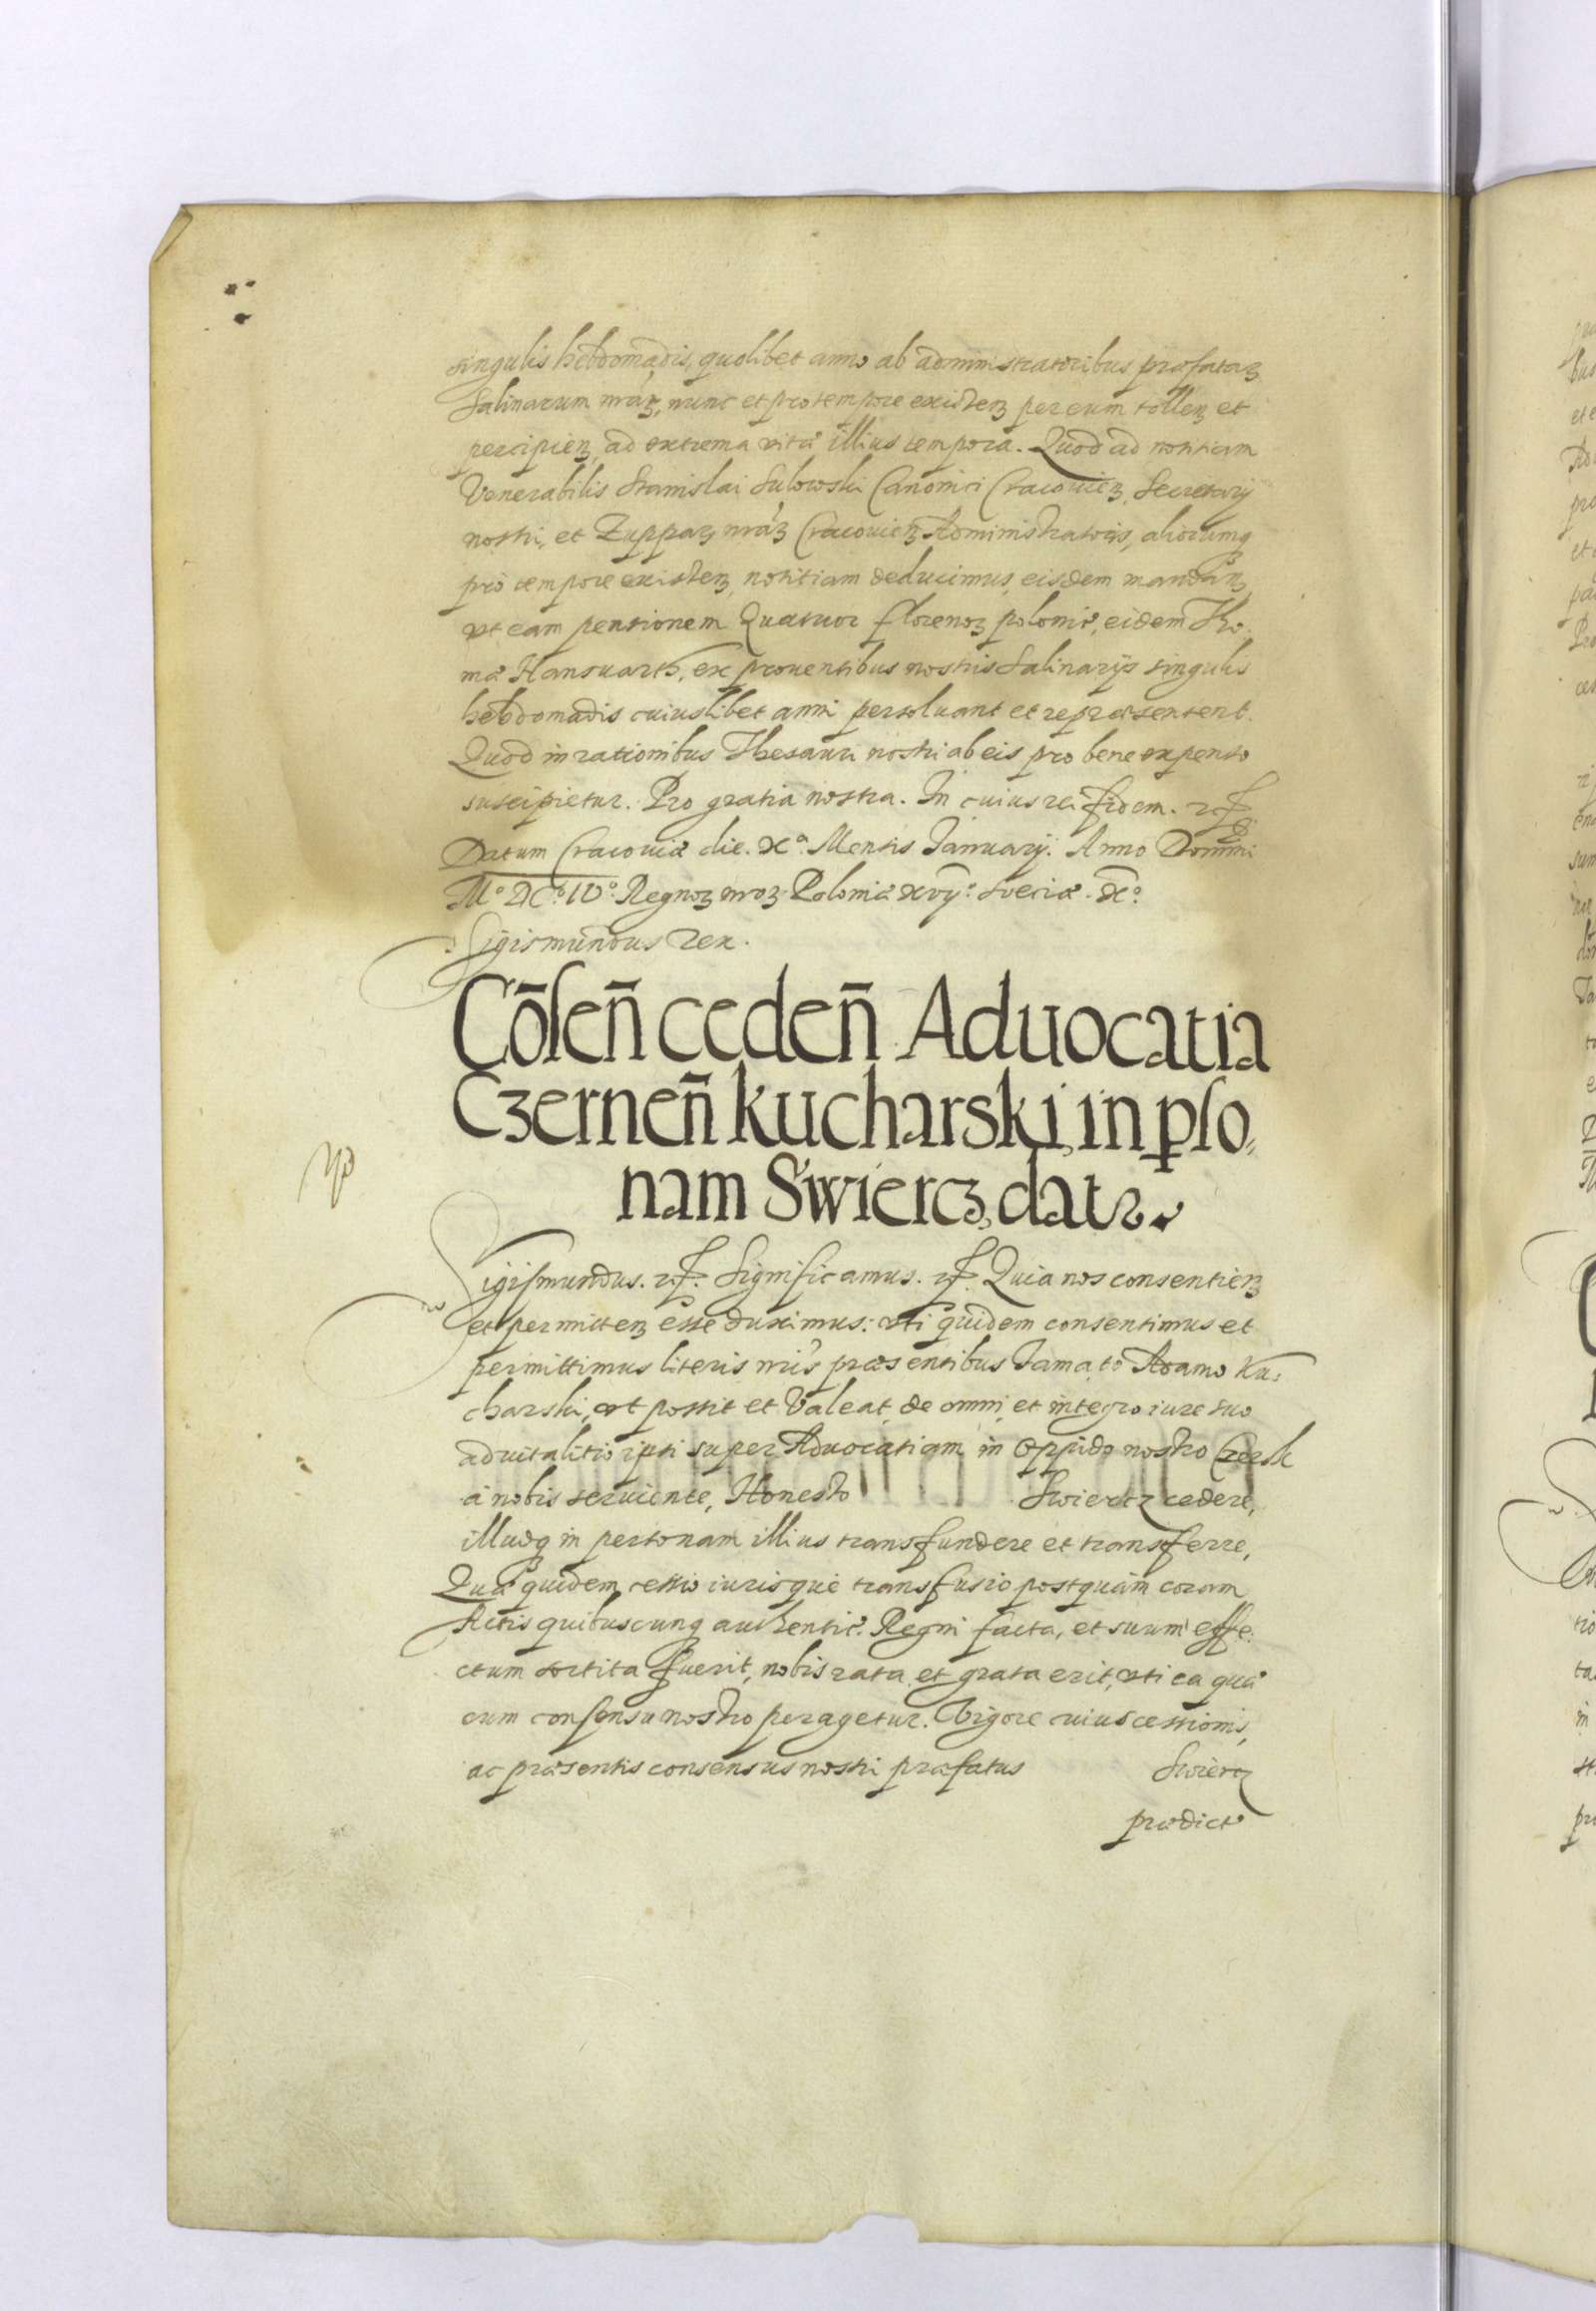 singulis hebdomadis, quolibet anno ab administratoribus præfataꝝ
Salinarum nr̃aꝝ, nunc et pro tempore existeñ per eum tolleñ et
percipieñ, ad extrema vitæ illius tempora. Quod ad notitiam
Venerabilis Stanislai Sulowski Canonici Cracovieñ, Secretarij
nostri, et Zuppaꝝ nr̃aꝝ Cracovieñ Administratoris, aliorumq̃
pro tempore existeñ, notitiam deducimus, eisdem mandañ,
vt eam pensionem Quatuor florenoꝝ polonic̃, eidem Tho-
mæ Hansuarth, ex prouentibus nostris Salinarijs singulis
hebdomadis cuiuslibet anni persoluant et repræsentent.
Quod in rationibus Thesauri nostri ab eis pro bene expenso
suscipietur. Pro gratia nostra. In cuius rei fidem. rꝭ
Datum Cracoviæ die. Xª. Mensis Januarij. Anno Domini
Mº. DCº. IVº. Regnoꝝ nr̃oꝝ Poloniæ xvijº. Sveciæ. xº.
Sigismundus Rex.
Cōseñ cedeñ Aduocatia
Czerneñ kucharski, in ꝑso=
nam Swiercz, datꝛ.
Sigismundus. rꝭ. Significamus. rꝭ. Quia nos consentieñ
et permitteñ esse duximus: vti quidem consentimus et
permittimus literis nr̃is præsentibus Famato Adamo Ku=
charski, vt possit et valeat, de omni, et integro iure suo
aduitalitio ipsi super Aduocatiam in Oppido nostro Czersk
à nobis seruiente, Honesto Swiercz cedere,
illudq̃ in personam illius transfundere et transferre,
Quæ quidem cessio iurisque transfusio postquàm coram
Actis quibuscunq̃ authentic̃. Regni facta, et suum effe-
ctum sortita fuerit, nobis rata et grata erit, vti ea quæ
cum consensu nostro peragetur. Vigore cuius cessionis,
ac præsentis consensus nostri præfatus Swiercz
prædictæ